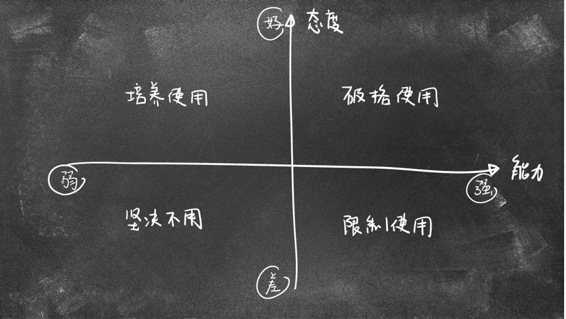 好 态度
培养使用 破格使用
弱 强 能力
坚决不用 限制使用
差